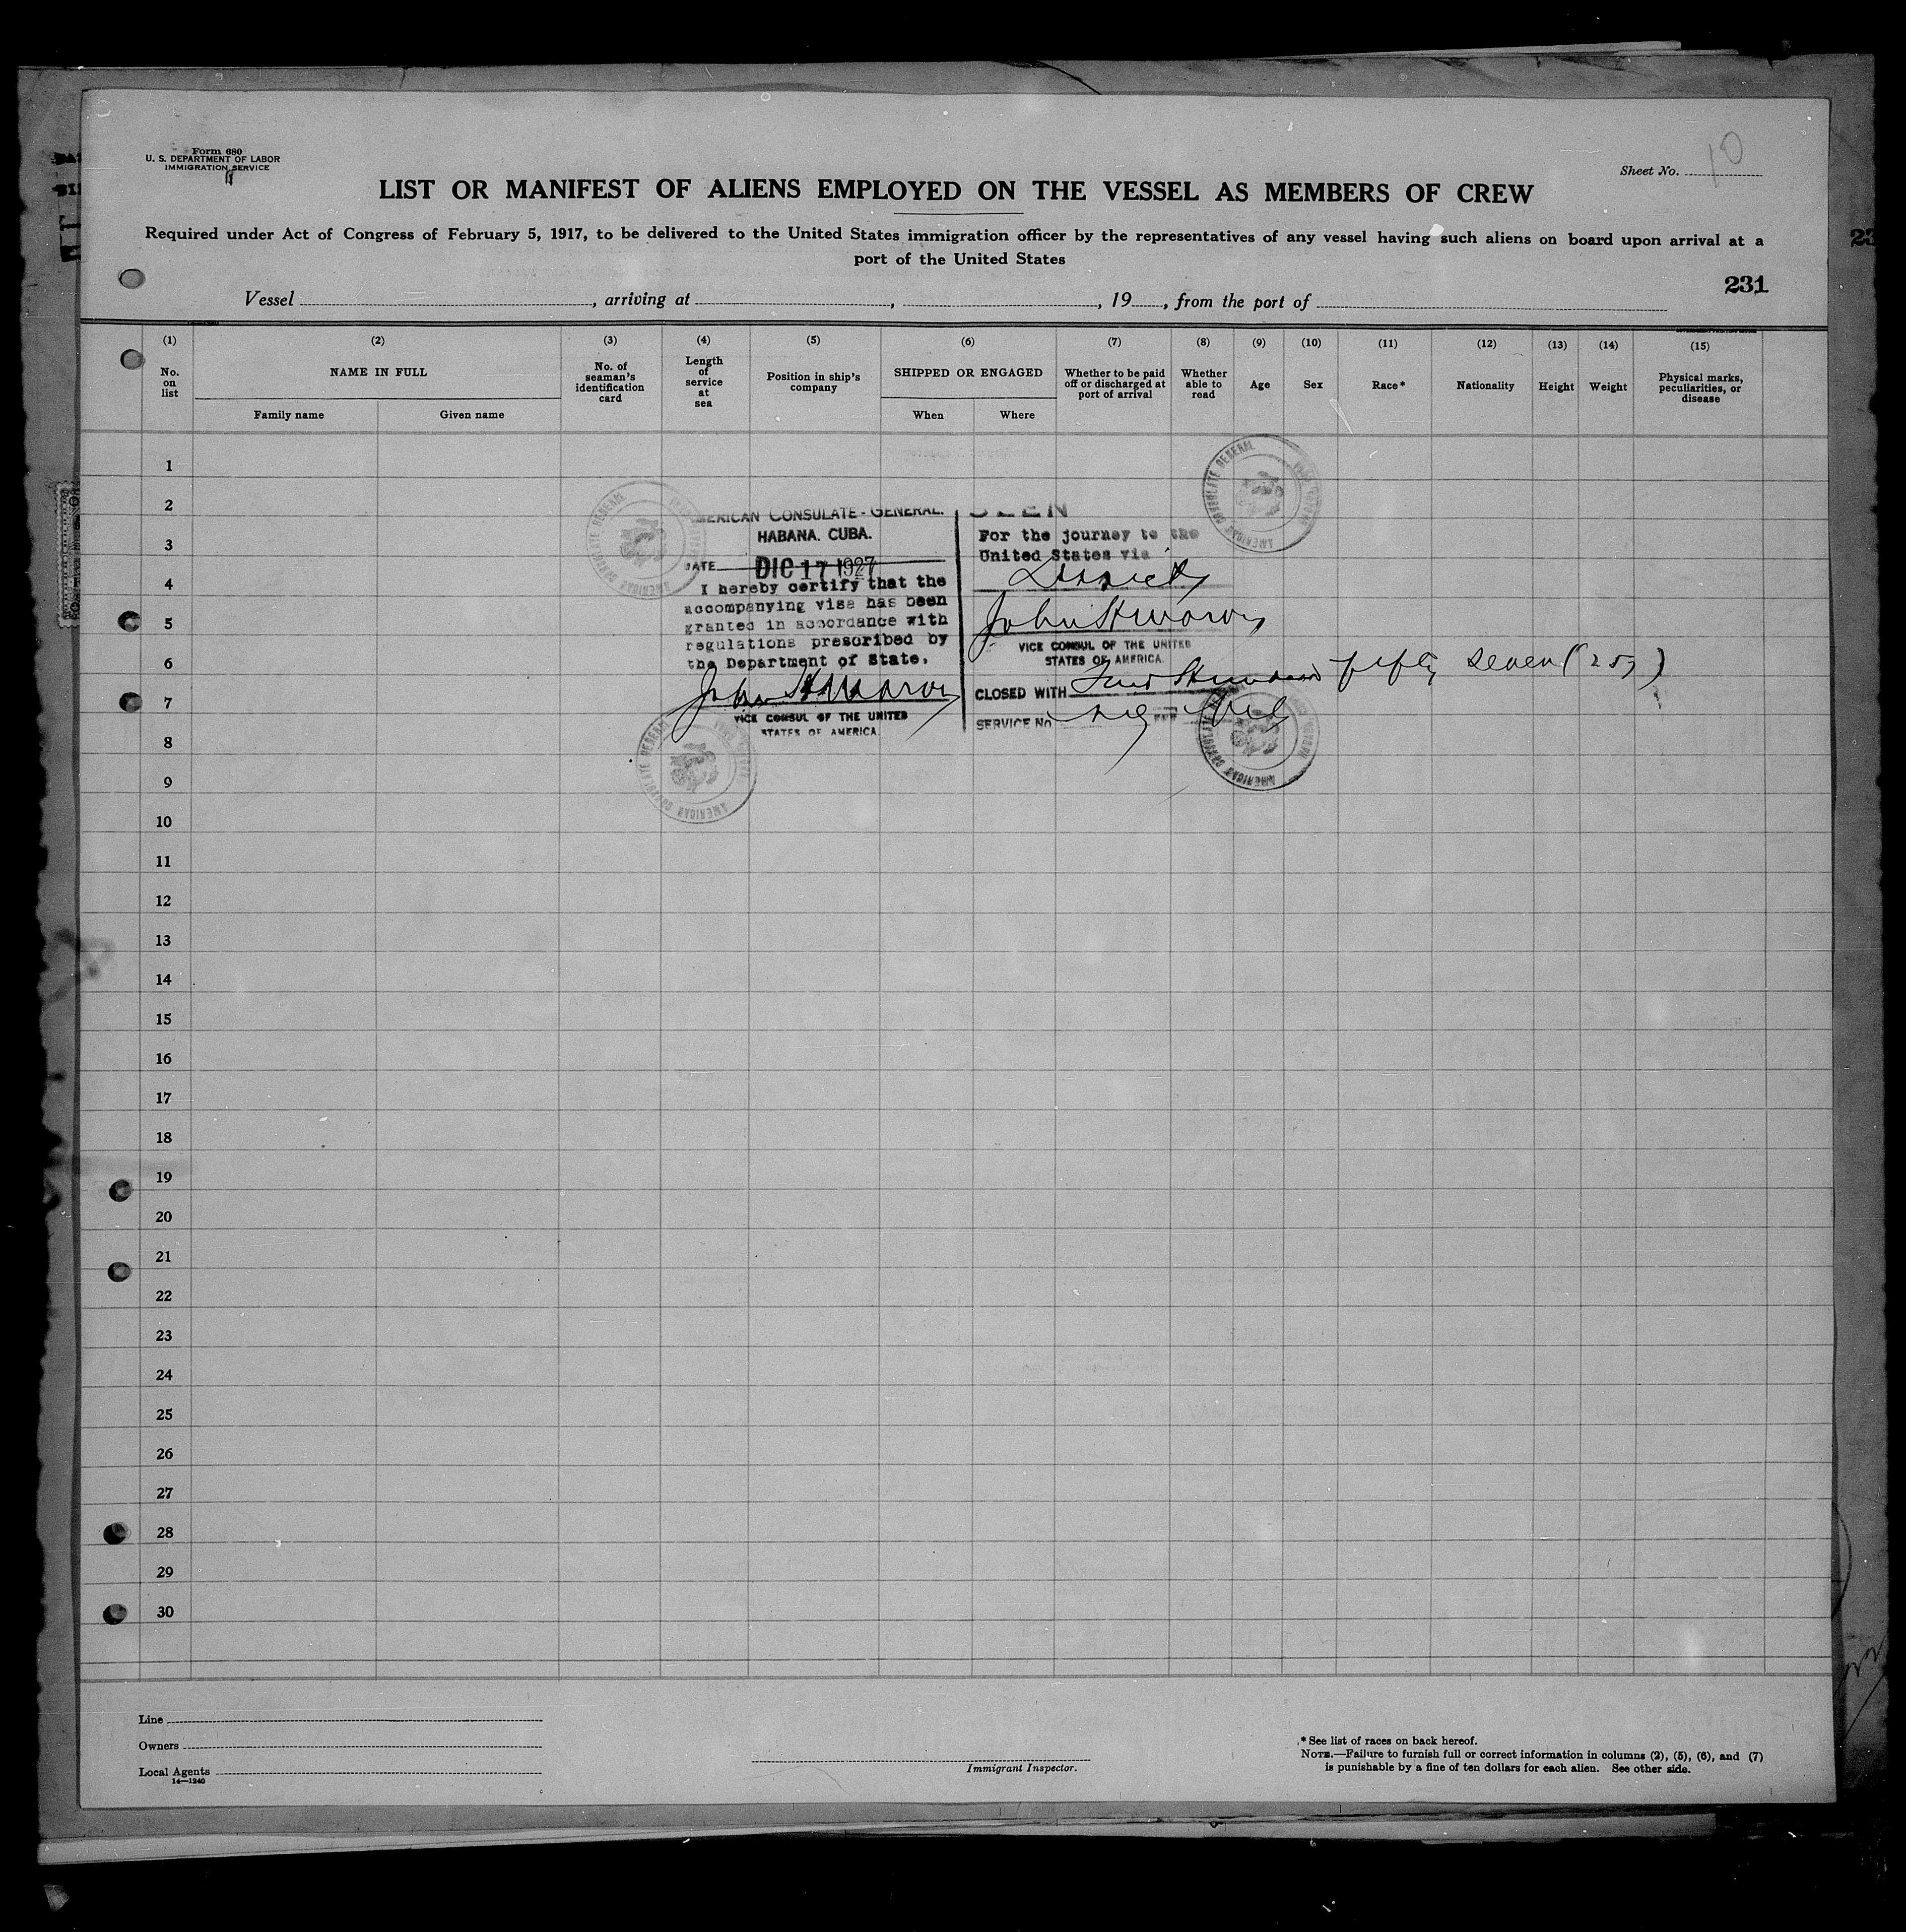 Form 680
U. S. DEPARTMENT OF LABOR
IMMIGRATION SERVICE
Sheet No. 10
LIST OR MANIFEST OF ALIENS EMPLOYED ON THE VESSEL AS MEMBERS OF CREW
Required under Act of Congress of February 5, 1917, to be delivered to the United States immigration officer by the representatives of any vessel having such aliens on board upon arrival at a
port of the United States
231
Vessel , arriving at , , 19 , from the port of
(1) (2) (3) (4) (5) (6) (7) (8) (9) (10) (11) (12) (13) (14) (15)
No. on list
NAME IN FULL
Family name Given name
No. of seaman's identification card
Length of service at sea
Position in ship's company
SHIPPED OR ENGAGED
When Where
Whether to be paid off or discharged at port of arrival
Whether able to read
Age
Sex
Race*
Nationality
Height
Weight
Physical marks, peculiarities, or disease
1
2
3
4
5
6
7
8
9
10
11
12
13
14
15
16
17
18
19
20
21
22
23
24
25
26
27
28
29
30
AMERICAN CONSULATE-GENERAL.
HABANA. CUBA.
DATE DIC 17 1927
I hereby certify that the
accompanying visa has been
granted in accordance with
regulations prescribed by
the Department of State.
John
VICE CONSUL OF THE UNITED
STATES OF AMERICA.
SEEN
For the journey to the
United States via
John
VICE CONSUL OF THE UNITED
STATES OF AMERICA.
CLOSED WITH fifty seven (257)
SERVICE No.
AMERICAN CONSULATE GENERAL
AMERICAN CONSULATE GENERAL
AMERICAN CONSULATE GENERAL
AMERICAN CONSULATE GENERAL
Line
Owners
Local Agents
14—1240
Immigrant Inspector.
* See list of races on back hereof.
NOTE.—Failure to furnish full or correct information in columns (2), (5), (6), and (7)
is punishable by a fine of ten dollars for each alien. See other side.